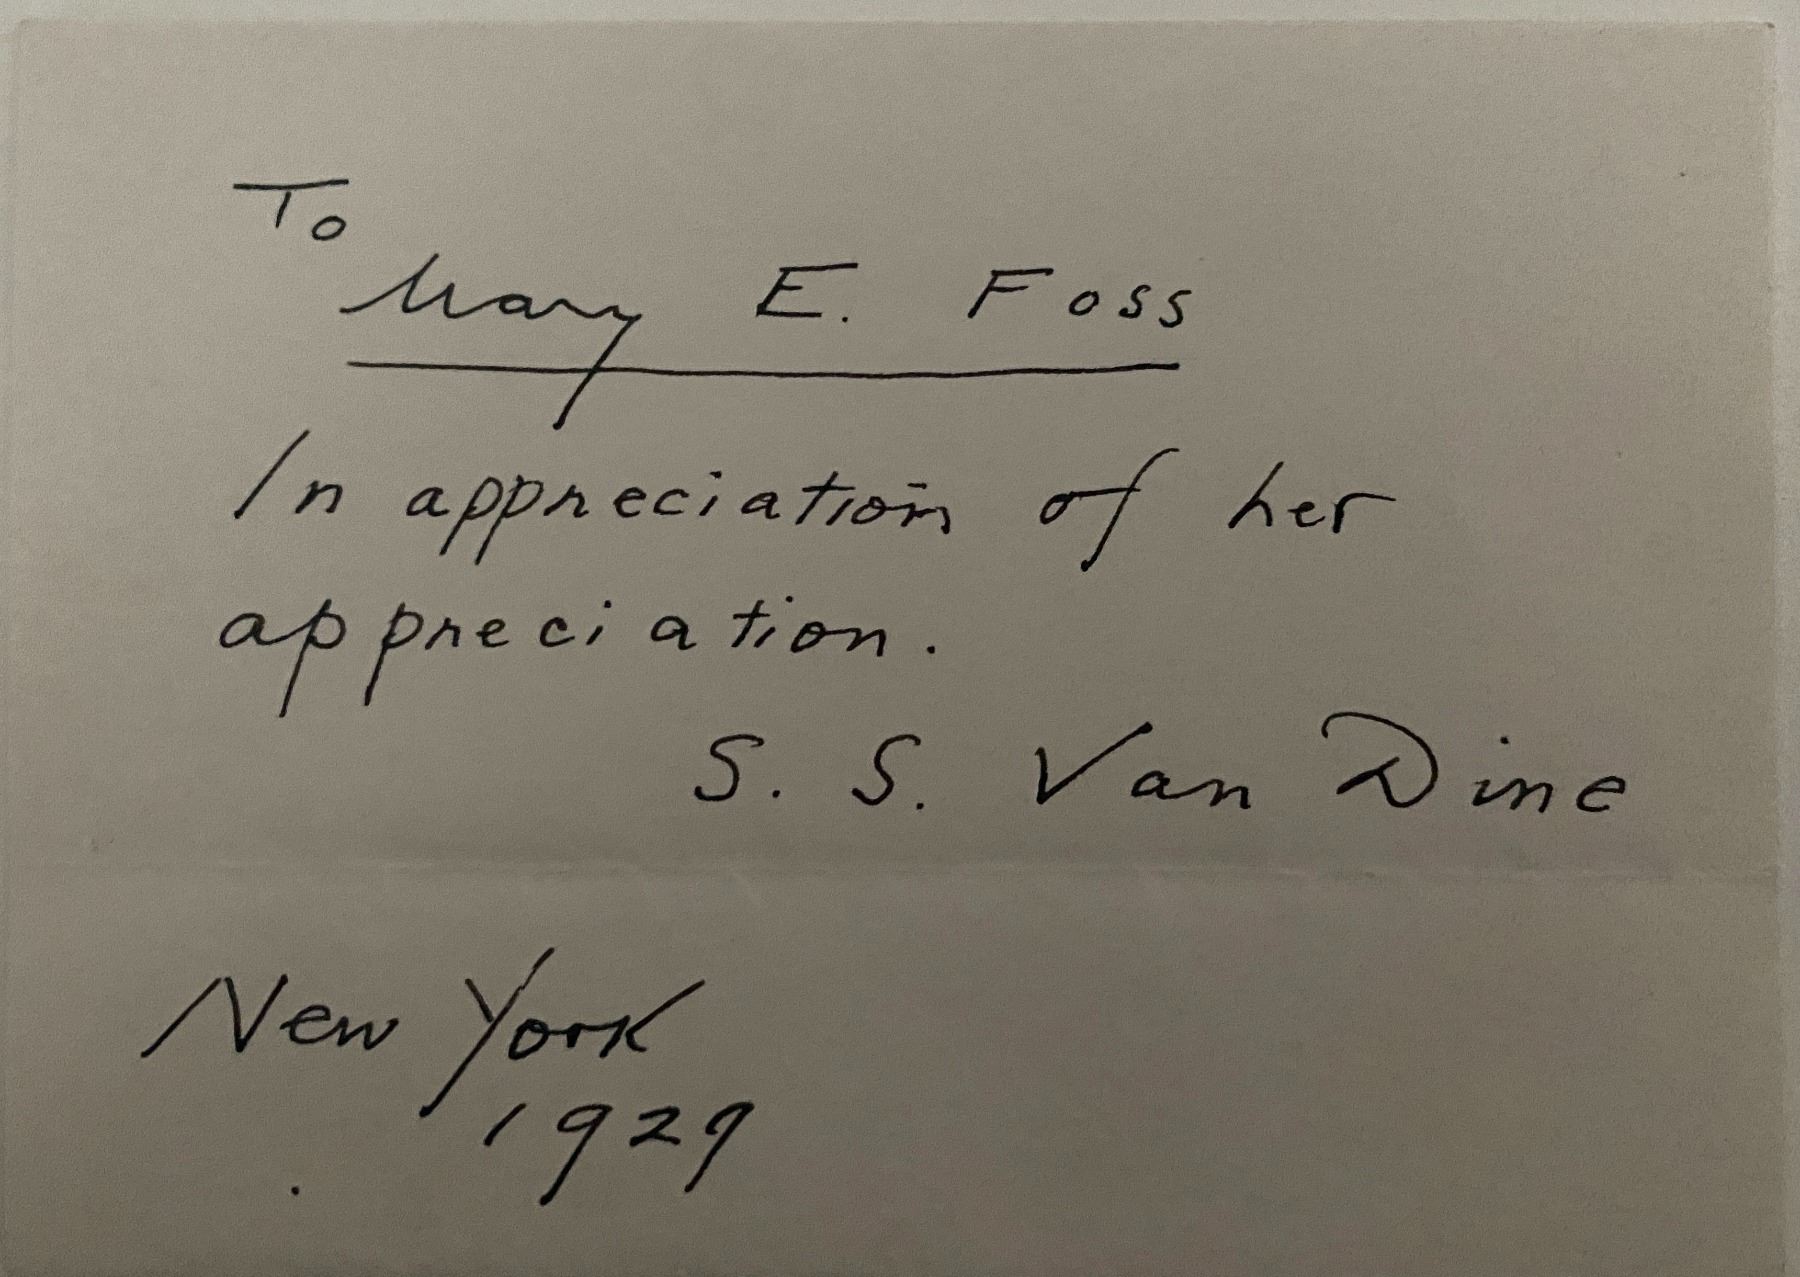 To
Mary E. Foss
In appreciation of her
appreciation.
S. S. Van Dine
New York
1929